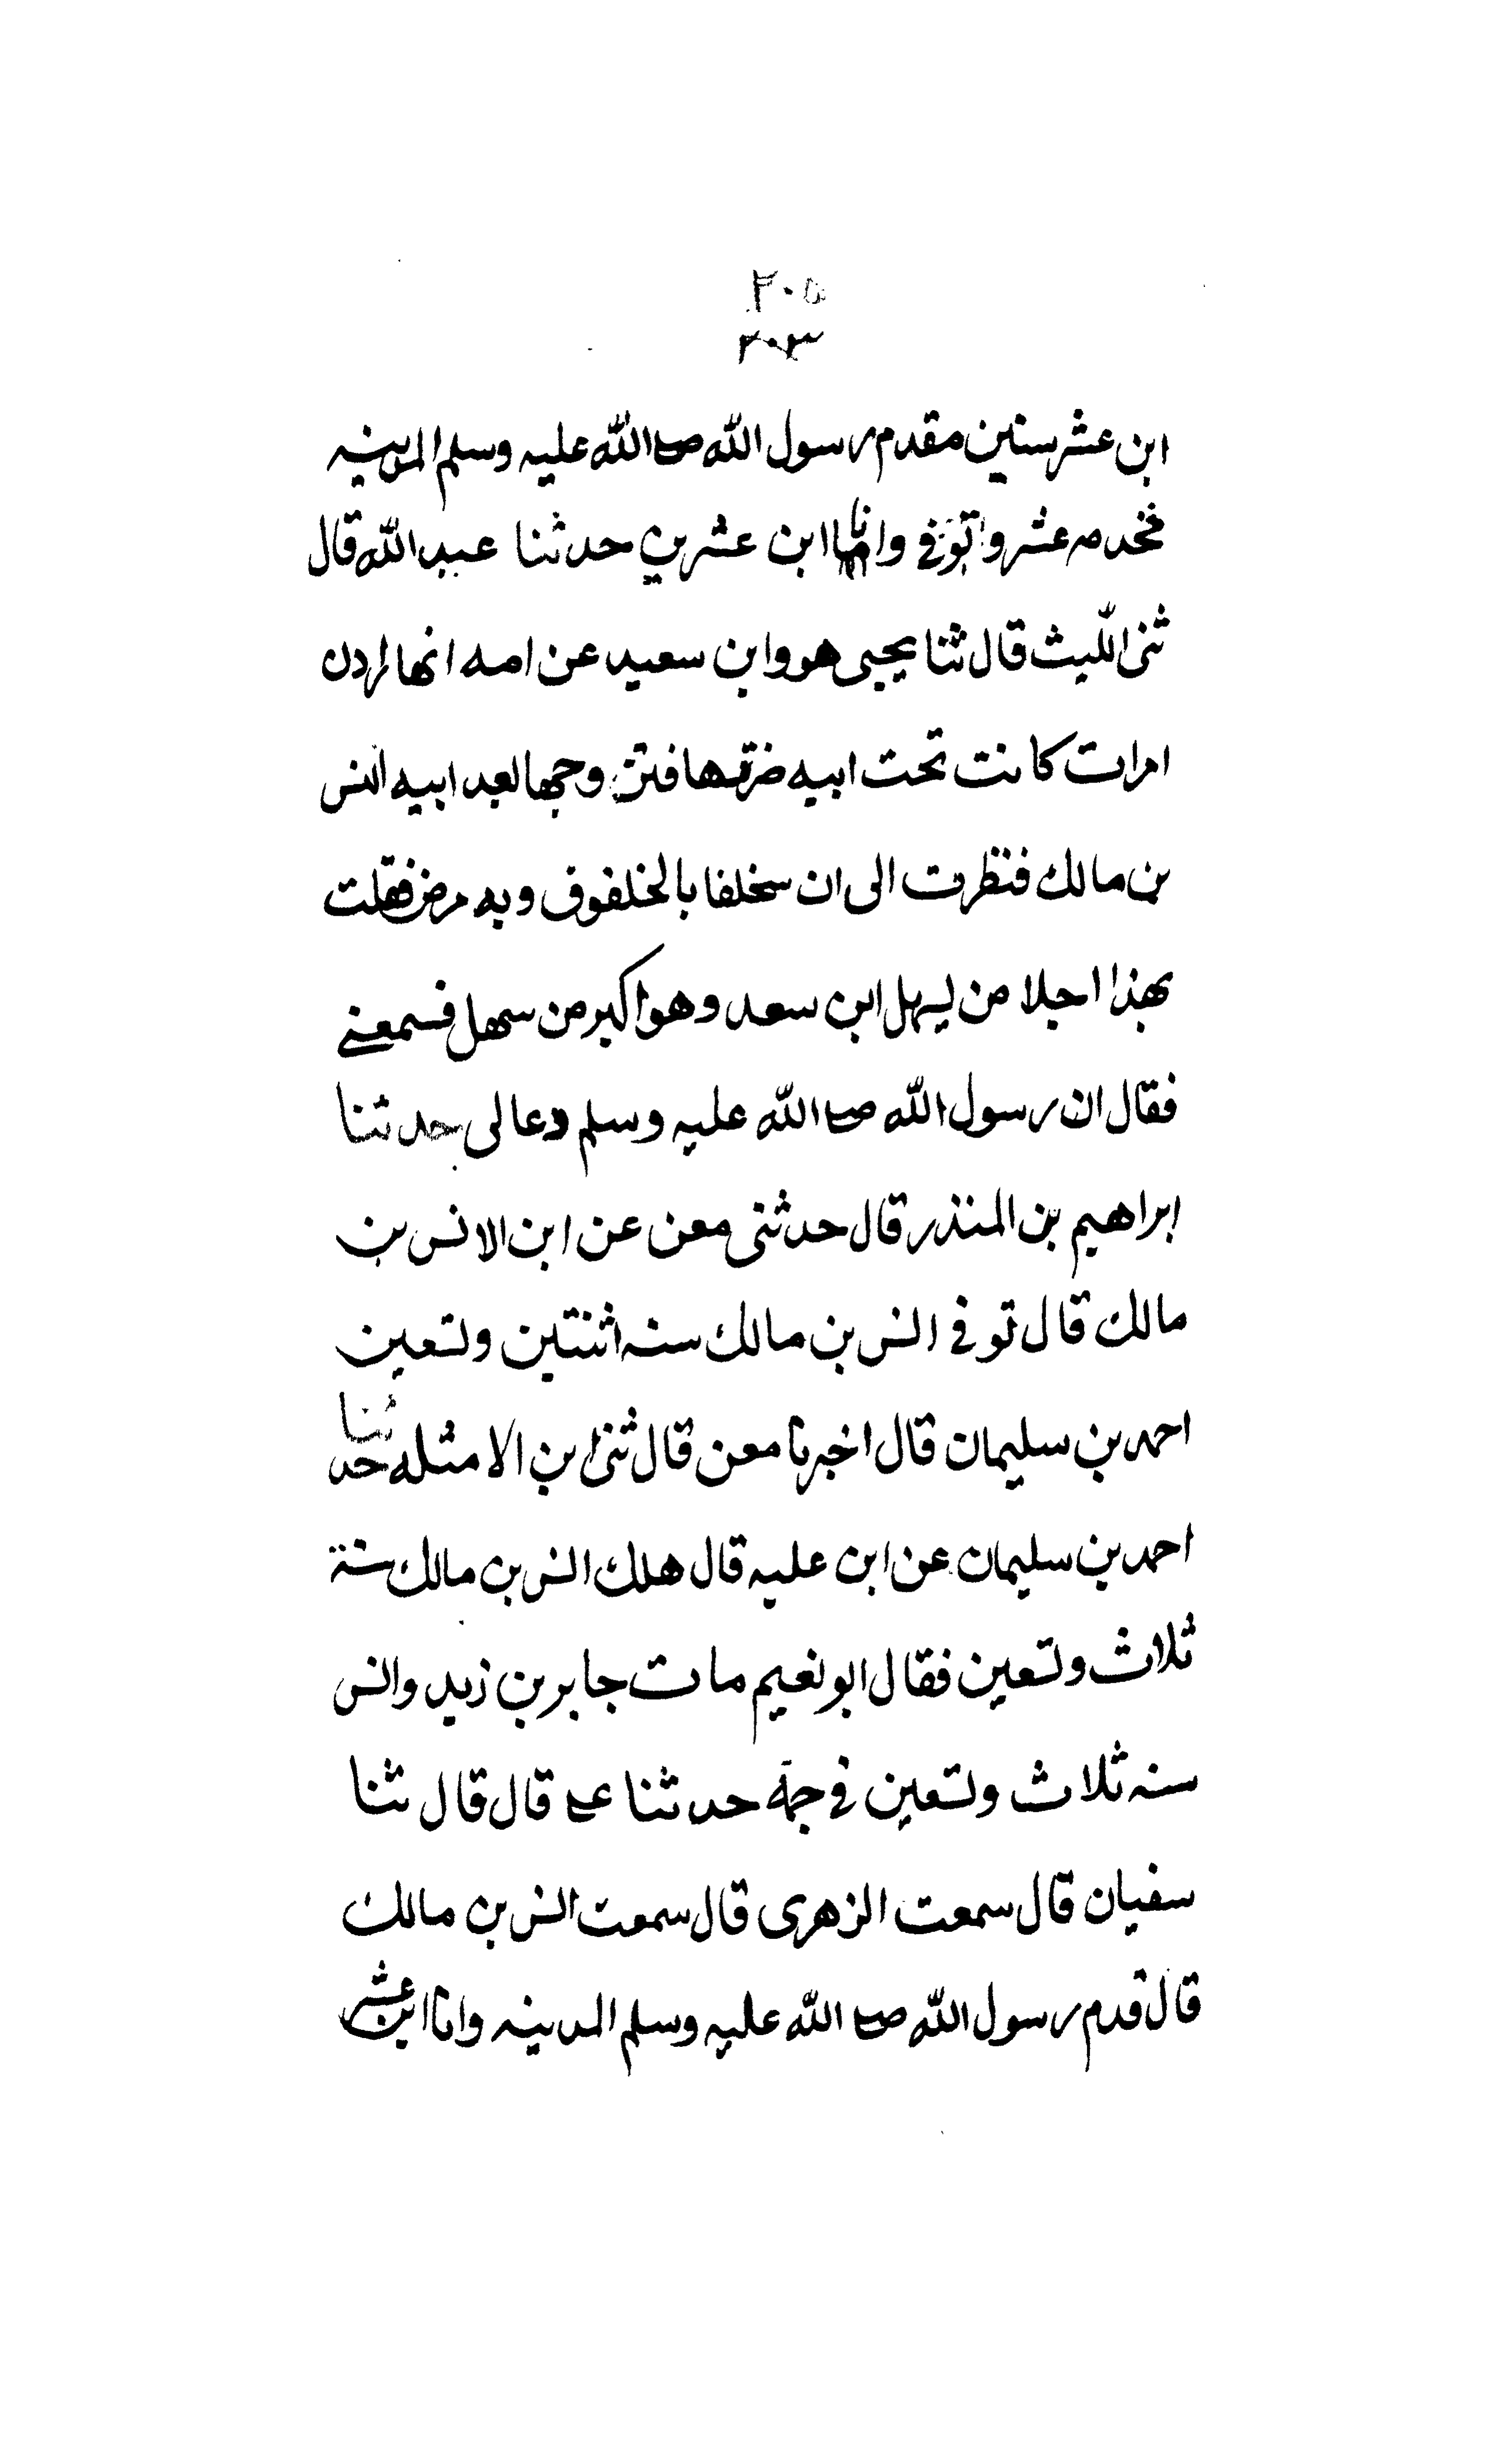 ٢٠٥
٣٠٣
ابن عشر سنين مقدم رسول الله صلى الله عليه وسلم المدينه
فخدمه عشر وا توفي وانا ابن عشرين حدثنا عبد الله قال
ثنى الليث قال ثنا يحيى هو وابن سعيد عن امه انها
امرات كانت تحت ابيه ضرتها فتزوجها بعد ابيه انس
بن مالك فنظرت الى ان سخلفا بالخلفوق وبه مرض فقلت
بهذا اجلا من ليهل ابن سعد وهو اكبر من سهل فسمعني
فقال ان رسول الله صلى الله عليه وسلم دعا لى حدثنا
ابراهيم بن المنذر قال حدثنى معن عن ابن الانس بن
مالك قال توفي انس بن مالك سنه اثنتين وتسعين
احمد بن سليمان قال اخبرنا معن قال ثنى ابن الا مثله حدثنا
احمد بن سليمان عن ابن عليه قال هلك انس بن مالك سنة
ثلاث وتسعين فقال ابو نعيم مات جابر بن زيد وانس
سنه ثلاث وتسعين في جمة حدثنا على قال قال ثنا
سفيان قال سمعت الزهرى قال سمعت انس بن مالك
قال قدم رسول الله صلى الله عليه وسلم المدينه وانا ابن عشر